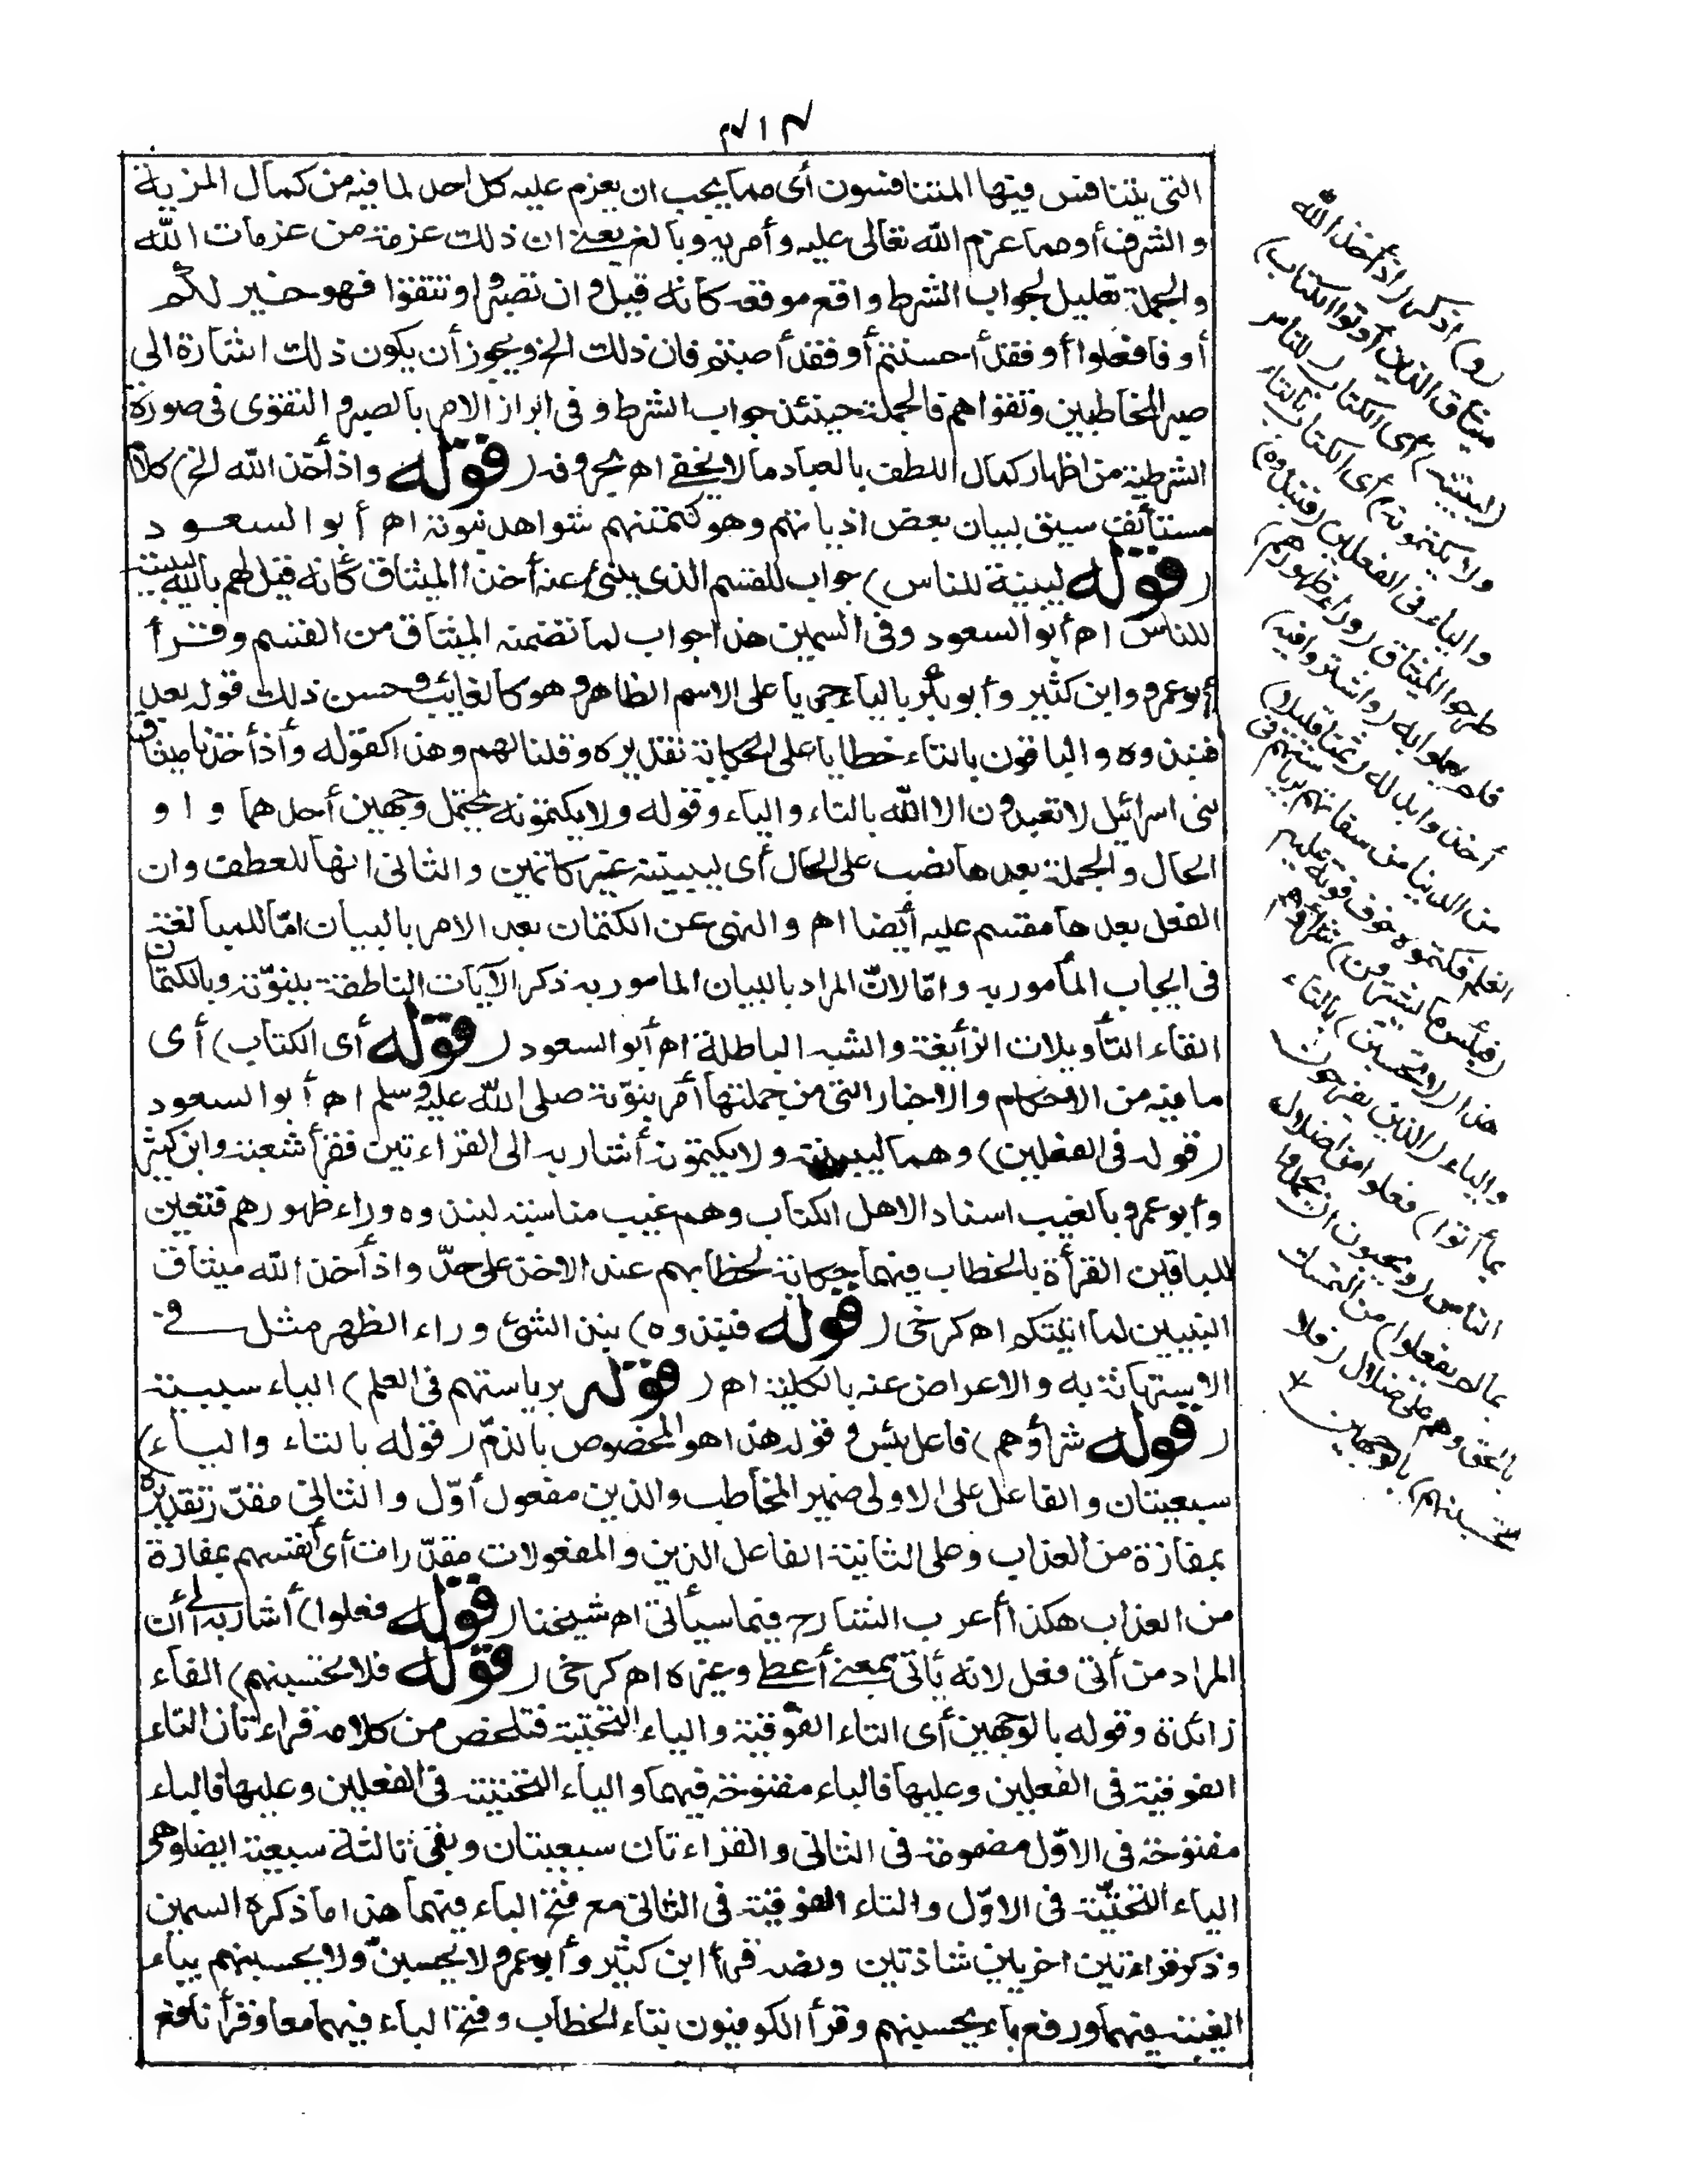 ٣١٣
التى يتنافس فيها المتنافسون أى مما يجب ان يعزم عليه كل احد لما فيه من كمال المزية
والشرف أو مما عزم الله تعالى عليه وأمر به وبالغ يعنى ان ذلك عزمة من عزمات الله
والجملة تعليل لجواب الشرط واقع موقعه كأنه قيل وان تصبروا وتتقوا فهو خير لكم
أو فافعلوا أو فقد أحسنتم أو فقد أصبتم فان ذلك الخ ويجوز أن يكون ذلك اشارة الى
صبر المخاطبين وتقواهم فالجملة حينئذ جواب الشرط وفى ابراز الامر بالصبر والتقوى فى صورة
الشرطية من اظهار كمال اللطف بالعباد ما لا يخفى اه بحروفه (قوله واذ أخذ الله الخ) كلام
مستأنف سيق لبيان بعض اذياتهم وهو كتمتهم شواهد نبوته اه أبو السعود
(قوله ليبيننه للناس) جواب للقسم الذى ينبئ عنه أخذ الميثاق كأنه قيل لهم بالله ليبيننه
للناس اه أبو السعود وفى السمين هذا جواب لما تضمنه الميثاق من القسم وقرأ
أبو عمرو وابن كثير وأبو بكر بالياء جريا على الاسم الظاهر وهو كالغائب وحسن ذلك قوله بعد
فنبذوه والباقون بالتاء خطابا على الحكاية تقديره وقلنا لهم وهذا كقوله وأذ أخذنا ميثاق
بنى اسرائيل لا تعبدون الا الله بالتاء والياء وقوله ولا يكتمونه يحتمل وجهين أحدهما واو
الحال والجملة بعدها نصب على الحال أى ليبيننه غير كاتمين والثانى انها للعطف وان
الفعل بعدها مقسم عليه أيضا اه والنهى عن الكتمان بعد الامر بالبيان امّا للمبالغة
فى ايجاب المأمور به وامّا لانّ المراد بالبيان المامور به ذكر الآيات الناطقة بنبوّته وبالكتمان
القاء التأويلات الزائغة والشبه الباطلة اه أبو السعود (قوله أى الكتاب) أى
ما فيه من الاحكام والاخبار التى من جملتها أمر نبوّته صلى الله عليه وسلم اه أبو السعود
(قوله فى الفعلين) وهما ليبيننه ولا يكتمونه أشار به الى القراءتين فقرأ شعبة وابن كثير
وأبو عمرو بالغيب اسنادا لاهل الكتاب وهم غيب مناسبة لبنذوه وراء ظهورهم فتعين
للباقين القرأة بالخطاب فيهما حكاية لخطابهم عند الاخذ على حدّ واذ أخذ الله ميثاق
النبيين لما اتيتكم اه كرخى (قوله فنبذوه) نبذ الشئ وراء الظهر مثل فى
الاستهانة به والاعراض عنه بالكلية اه (قوله برياستهم فى العلم) الباء سببية
(قوله شراؤهم) فاعل بئس وقوله هذا هو المخصوص بالذمّ (قوله بالتاء والياء)
سبعيتان والفاعل على الاولى ضمير المخاطب والذين مفعول أوّل والثانى مقدّر تقديره
بمفازة من العذاب وعلى الثانية الفاعل الذين والمفعولات مقدّرات أى أنفسهم بمفازة
من العذاب هكذا أعرب الشارح فيما سيأتى اه شيخنا (قوله فعلوا) أشار به الى أن
المراد من أتى فعل لانه يأتى بمعنى أعطى وغيره اه كرخى (قوله فلا تحسبنهم) الفاء
زائدة وقوله بالوجهين أى التاء الفوقية والياء التحتية فتلخص من كلامه قراءتان التاء
الفوقية فى الفعلين وعليها فالباء مفتوحة فيهما والياء التحتية فى الفعلين وعليها فالباء
مفتوحة فى الاوّل مضمومة فى الثانى والقراءتان سبعيتان وبقى ثالثة سبعية ايضا وهى
الياء التحتيّة فى الاوّل والتاء الفوقية فى الثانى مع فتح الباء فيهما هذا ما ذكره السمين
وذكر قراءتين اخريين شاذتين ونصه قرأ ابن كثير وأبو عمرو لا يحسبنّ ولا يحسبنهم بياء
الغيبة فيهما ورفع باء يحسبنهم وقرأ الكوفيون بتاء الخطاب وفتح الباء فيهما معا وقرأ نافع
(و) اذكر (اذ أخذ الله
ميثاق الذين أوتوا الكتاب)
(ليبيننه) أى الكتاب (للناس
ولا يكتمونه) أى الكتاب بالتاء
والياء فى الفعلين (فنبذوه)
طرحوا الميثاق (وراء ظهورهم)
فلم يعملوا به (واشتروا به)
أخذوا بدله (ثمنا قليلا)
من الدنيا من سفلتهم برياستهم فى
العلم فكتموه خوف فوته عليهم
(فبئس ما يشترون) شراؤهم
هذا (لا تحسبن) بالتاء
والياء (الذين يفرحون
بما أتوا) فعلوا من اضلال
الناس (ويحبون ان يحمدوا
بما لم يفعلوا) من التمسك
بالحق وهم على ضلال (فلا
تحسبنهم) بالوجهين